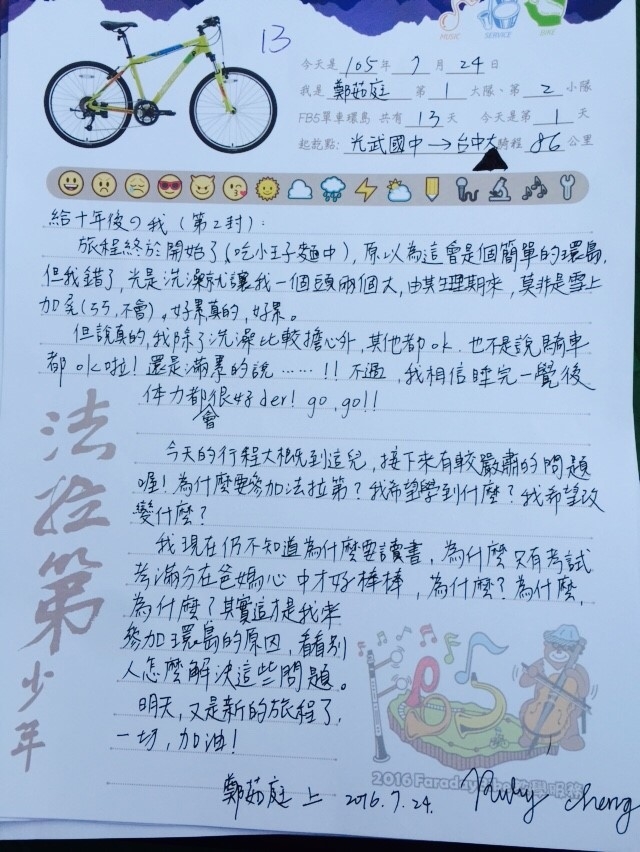 13
MUSIC SERVICE BIKE
今天是 105 年 7 月 24 日
我是 鄭茹庭 第 1 大隊、第 2 小隊
FB5單車環島 共有 13 天 今天是第 1 天
起訖點: 光武國中→台中 騎程 86 公里
給十年後の我(第2封):
旅程終於開始了(吃小王子麵中),原以為這會是個簡單的環島,
但我錯了,光是洗澡就讓我一個頭兩個大,由其生理期來,莫非是雪上
加霜(ㄎㄎ,不會),好累真的,好累。
但說真的,我除了洗澡比較擔心外,其他都ok.也不是說騎車
都ok啦!還是滿累的說……!!不過,我相信睡完一覺後
体力都會很好der! go,go!!
今天的行程大概到這兒,接下來有較嚴肅的問題
喔!為什麼要參加法拉第?我希望學到什麼?我希望改
變什麼?
我現在仍不知道為什麼要讀書,為什麼只有考試
考滿分在爸媽心中才好棒棒,為什麼?為什麼,
為什麼?其實這才是我來
參加環島的原因,看看別
人怎麼解決這些問題。
明天,又是新的旅程了,
一切,加油!
鄭茹庭 上 2016.7.24. Ruby Cheng
法拉第少年
2016 Faraday